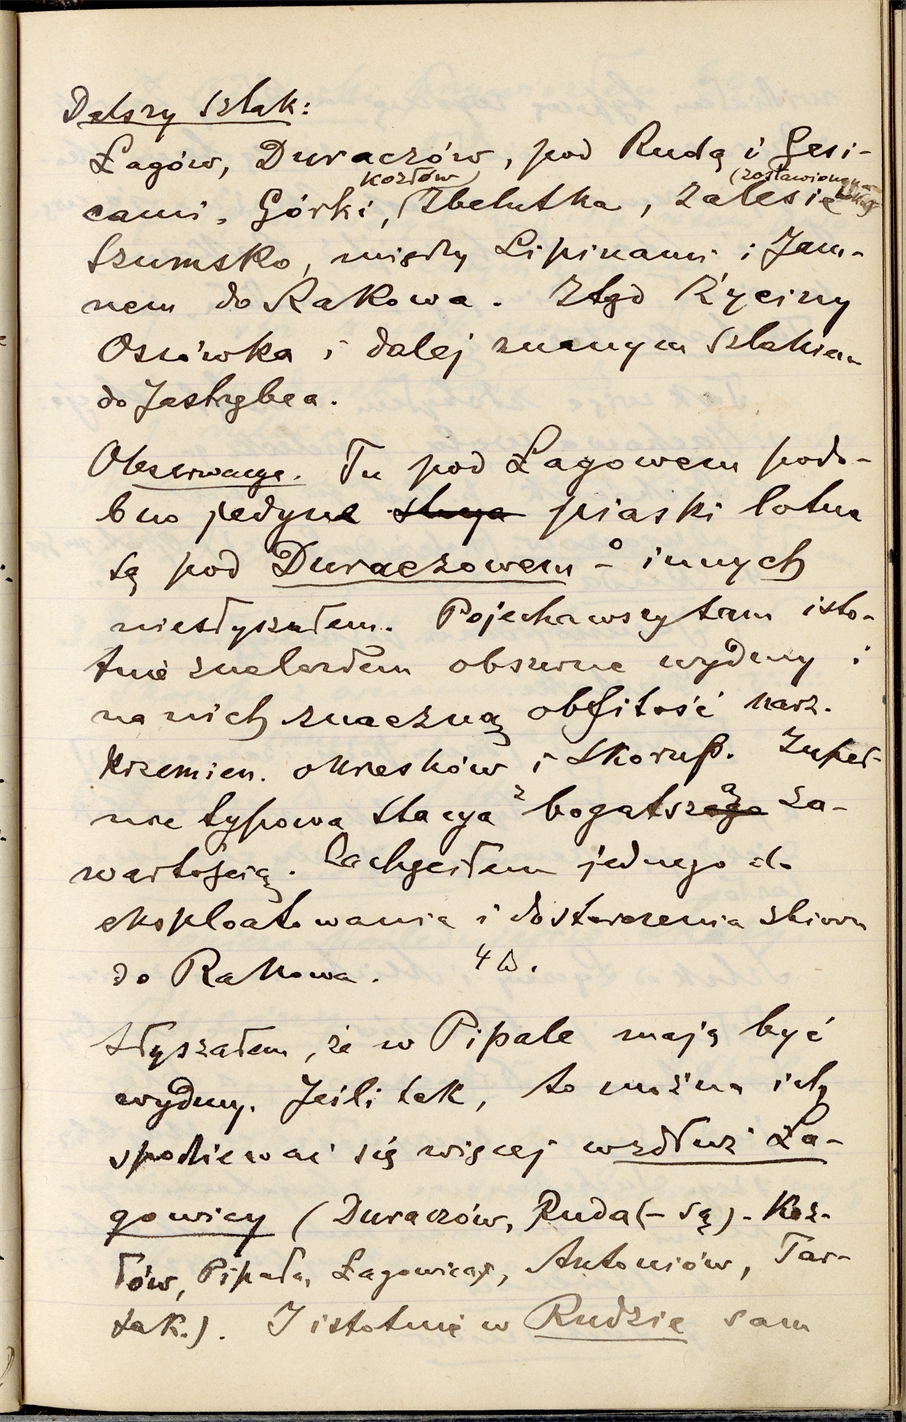 Dalszy szlak:
Łagów, Duraczów, pod Rudą i Gęsi-
cami, Górki, (Kozłów) Zbelutka, Zalesie (zostawione na
Szumsko, między Lipinami i Jam-
nem do Rakowa. Ztąd Życiny
Ossówka i dalej znanym szlakiem
do Jastrzębca.
Obserwacye. Tu pod Łagowem podo-
bno jedyne piaski lotne
są pod Duraczowem – o innych
niesłyszałem. Pojechawszy tam isto-
tnie znalazłem obszerne wydmy i
na nich znaczną obfitość narz.
krzemien. okresków i skorup. Zupeł-
nie typowa stacya z bogatszą za-
wartością. Zachęciłem jednego do
eksploatowania i dostarczenia zbioru
do Rakowa. 4
Słyszałem, że w Pipale mają być
wydmy. Jeśli tak, to można ich
spodziewać się więcej wzdłuż Ła-
gowicy (Duraczów, Ruda (– są) – Koz-
łów, Pipała, Łagowica, Antoniów, Tar-
tak.). I istotnie w Rudzie sam